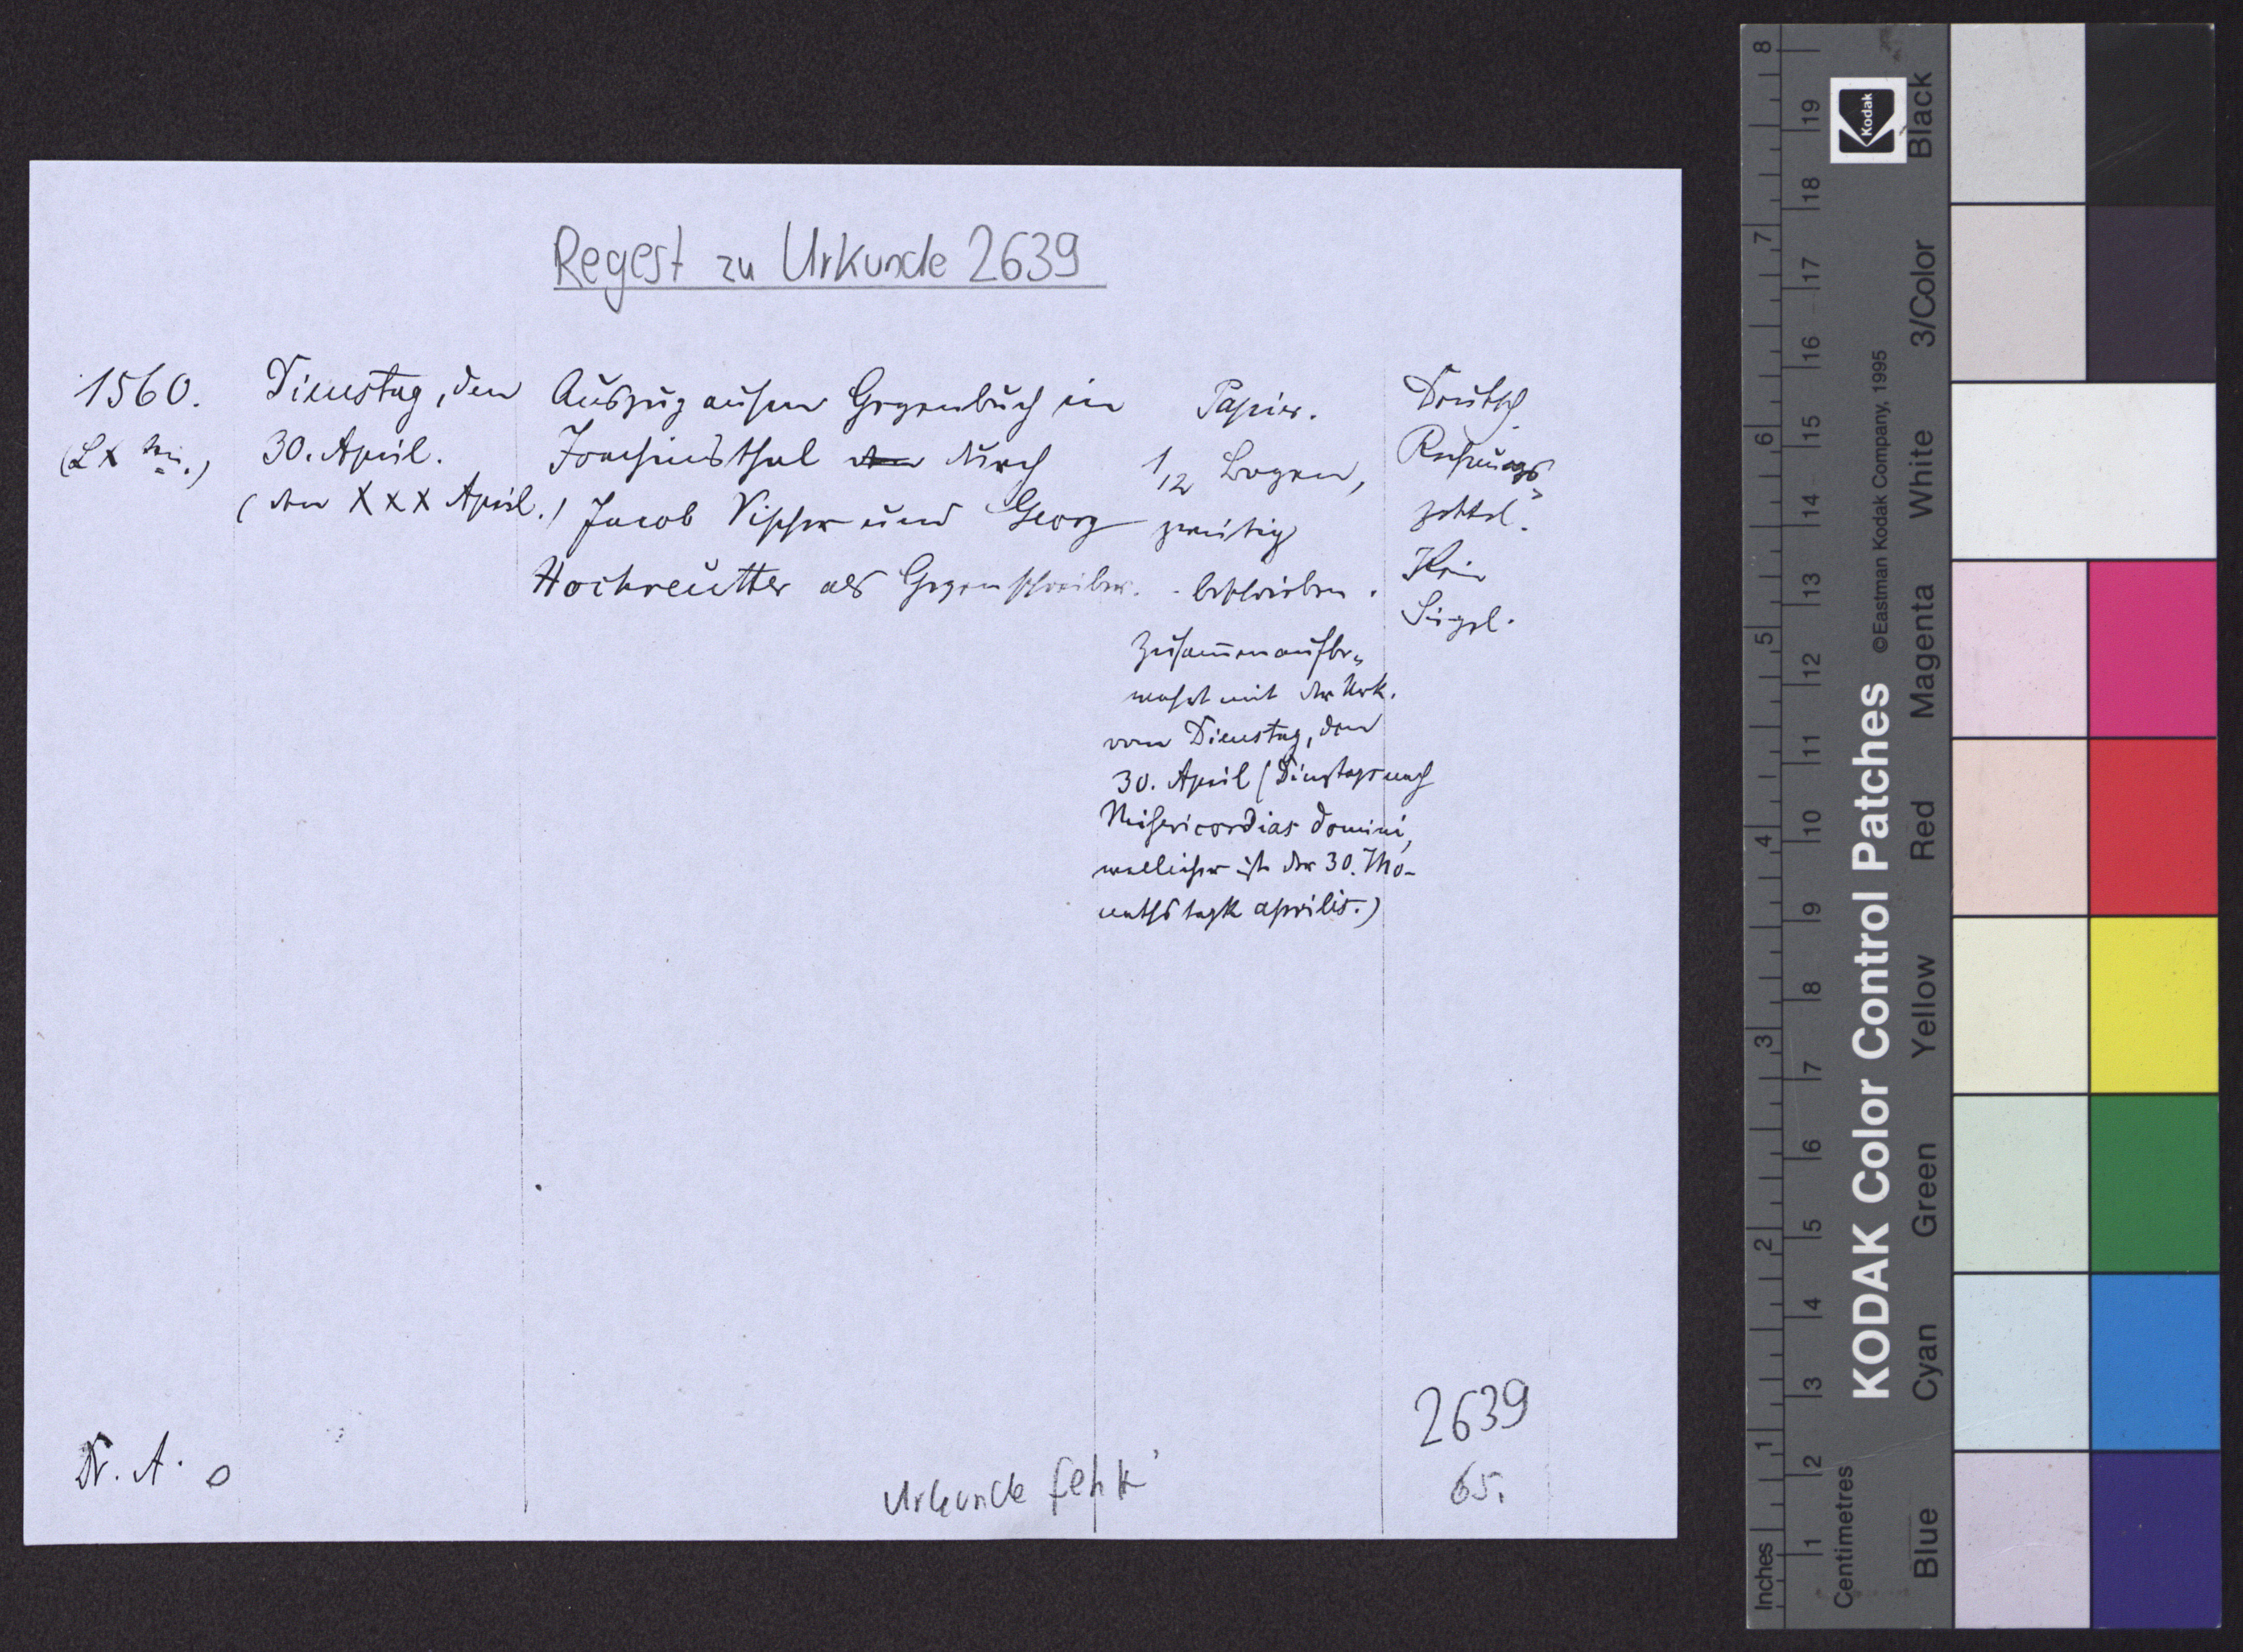 Regest zu Urkunde 2639
1560.
(LX
Dienstag, den
30. April.
(den XXX April.)
Auszug ausem Gegenbuch in
Joachimsthal den durch
Jacob Vischer und Georg
Hochreutter als Gegenschreiber.
Papier.
1/2 Bogen,
zweitig
beschrieben.
Zusammenaufbe-
wahrt mit der Urk.
vom Dienstag, den
30. April (Dinstags nach
Misericordias domini,
wellicher ist der 30. Mo-
nathstagk aprilis.)
Deutsch.
Rechnungs-
zettel.
Kein
Siegel.
N. A.
Urkunde fehlt
2639
65.
KODAK Color Control Patches
©Eastman Kodak Company, 1995
Kodak
Blue Cyan Green Yellow Red Magenta White 3/Color Black
Inches 1 2 3 4 5 6 7 8
Centimetres 1 2 3 4 5 6 7 8 9 10 11 12 13 14 15 16 17 18 19